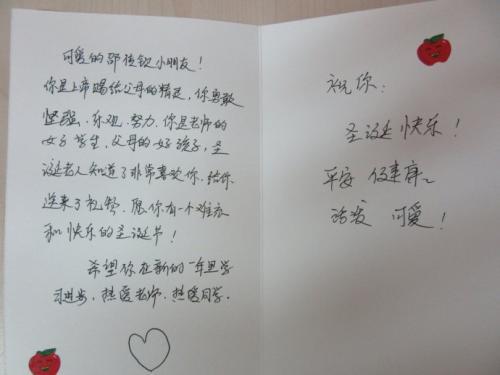 可爱的邵佳钦小朋友！
你是上帝赐给父母的精灵，你勇敢
坚强、乐观、努力，你是老师的
好学生，父母的好孩子，圣
诞老人知道了非常喜欢你，给你
送来了礼物，愿你有一个难忘
和快乐的圣诞节！
希望你在新的一年里学
习进步，热爱老师，热爱同学。
祝你：
圣诞快乐！
平安 健康
活泼 可爱！